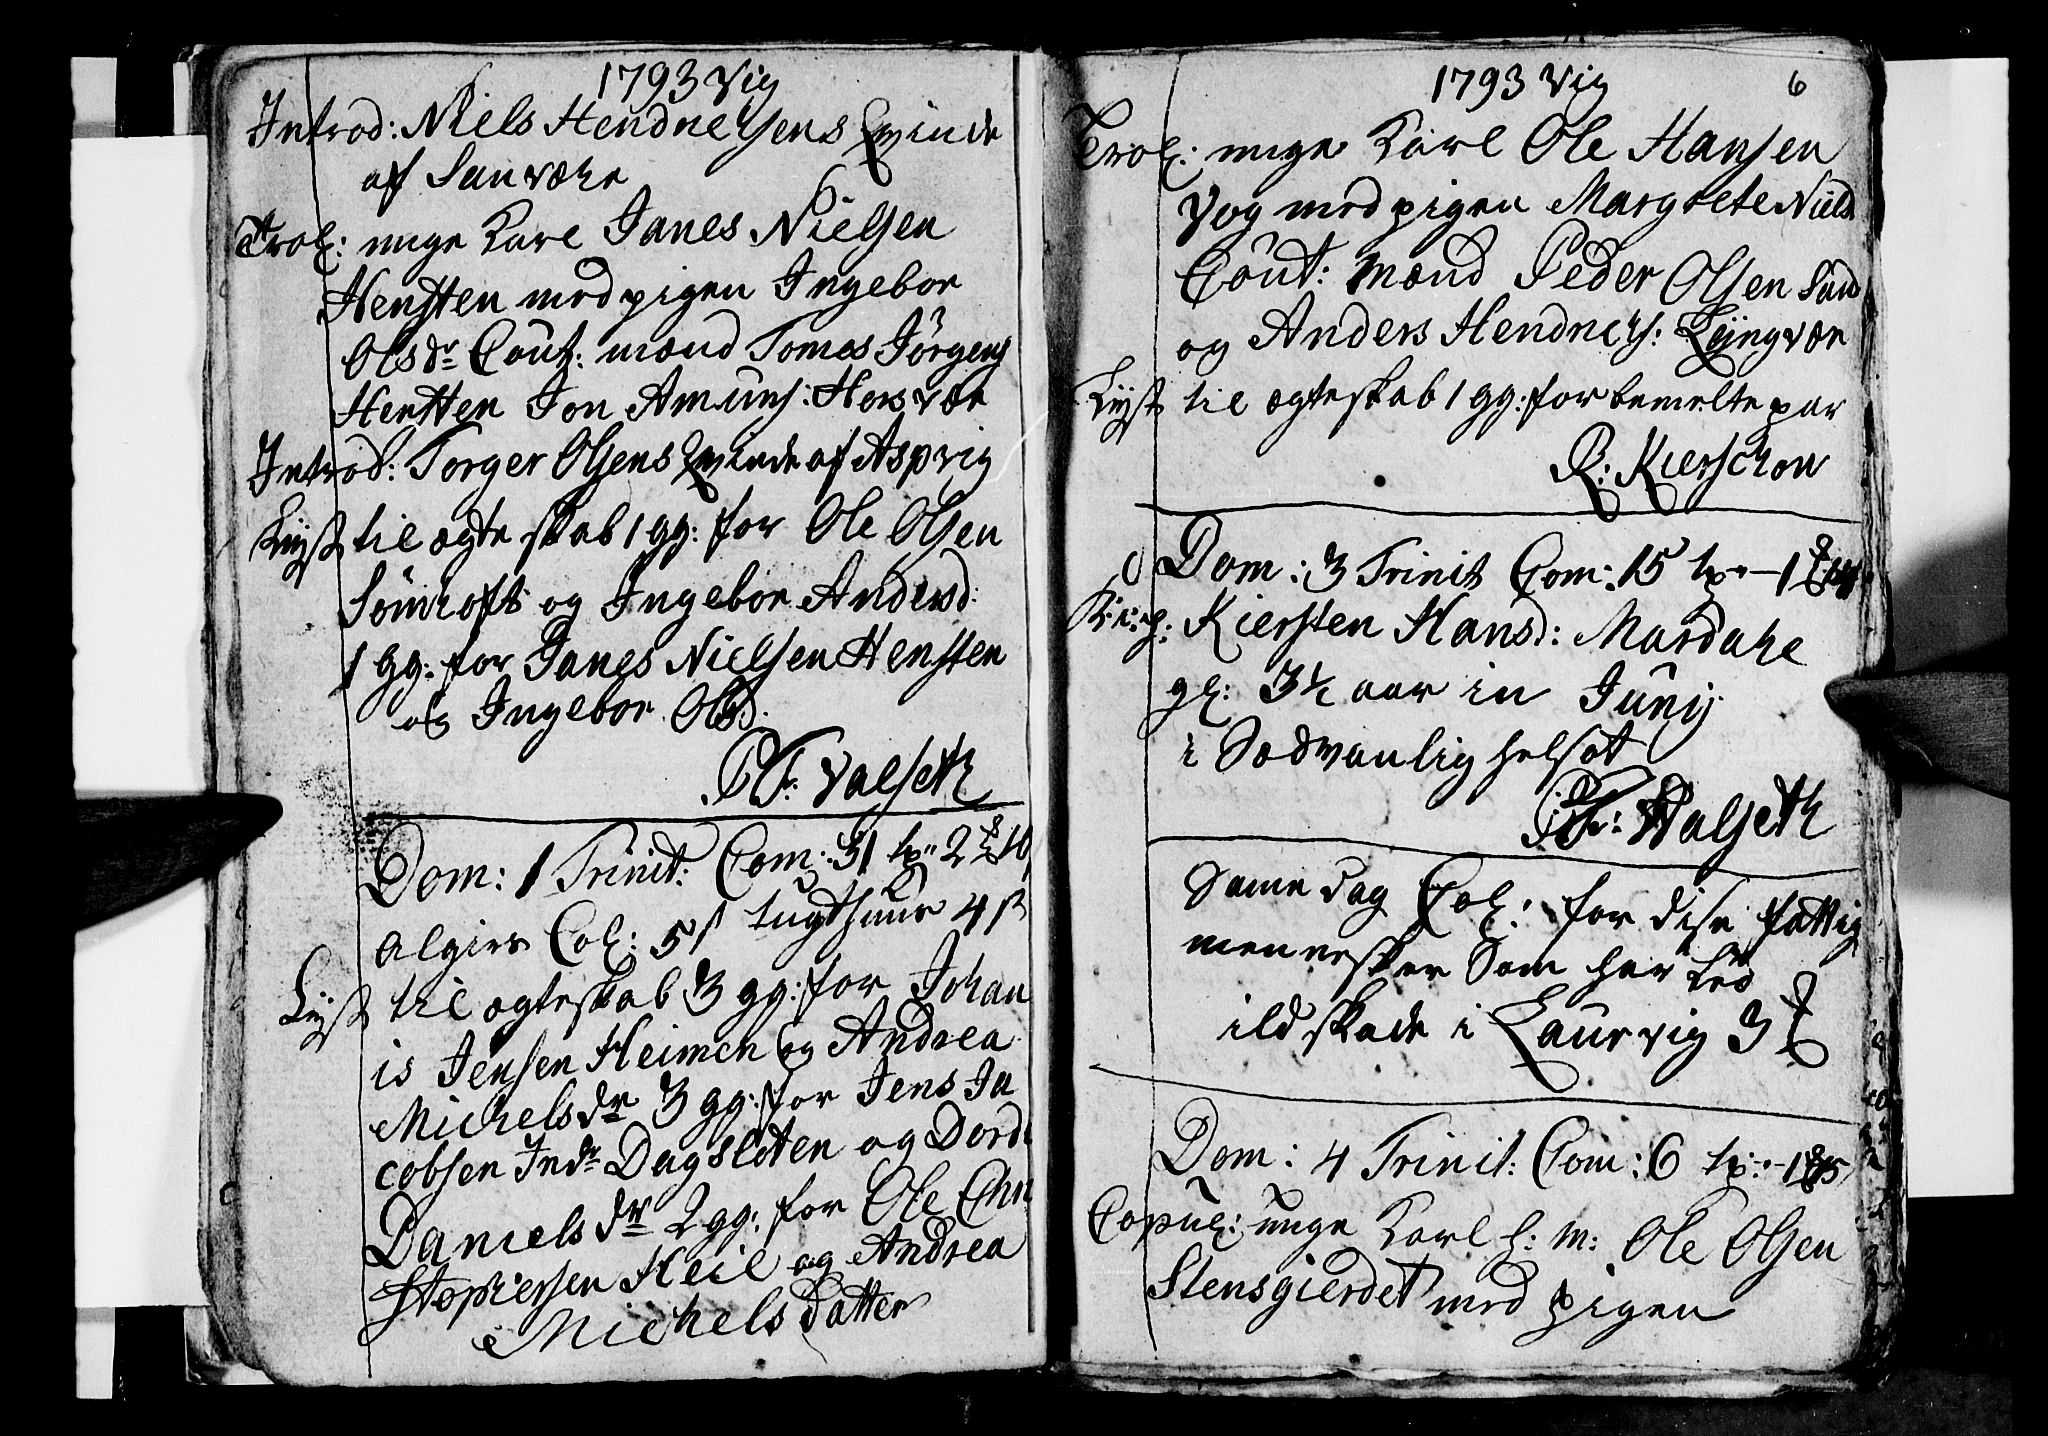 1793 Vig
Introd: Niels Hendrichsens Qvinde
af Sanvære
Trol: unge Karl Janes Nielsen
Hensten med pigen Ingebor
Ols dr Cout: mænd Tomes Jörgens
Hensten Jon Amuns: Hors vær
Introd: Torger Olsens Qvinde af Aspvig
Lyst til ægte skab 1 gg: for Ole Olsen
Sömroft og Ingebor Andersd:
1 gg: for Janes Nielsen Hensten
og Ingebor Olsd.
Valseth
Dom: 1 Trinit: Com: 31 tx: 2
algiers Col: 5 s tugthuus 4 s
Lyst til ægteskab 3 gg: for Johan
is Jensen Heimen og Andrea
Michels dr 3 gg: for Jens Ja
cobsen Indr Dagsloten og Dord
Daniels dr 2 gg: for Ole Chri
stophersen Heil og Andrea
Michels datter
1793 Vig 6
Trol: unge Karl Ole Hansen
Vog med pigen Margrete Niels
Cout: mænd Peder Olsen Sand
og Anders Hendrichs: Lyngvær
Lyst til ægteskab 1 gg: for bemelte par
R: Kierschow
Dom: 3 Trinit Com: 15 tx: 1
Kiersten Hansd: Mardahe
gl: 3½ aar in Junij
i Sædvanlig helsot
Walseth
Same dag Col: for dise fattig
mennesker Som har Lid
ildskade i Laurvig 3
Dom: 4 Trinit: Com: 6 tx: 1
Copul: unge Karl h: m: Ole Olsen
Stensgierdet med pigen